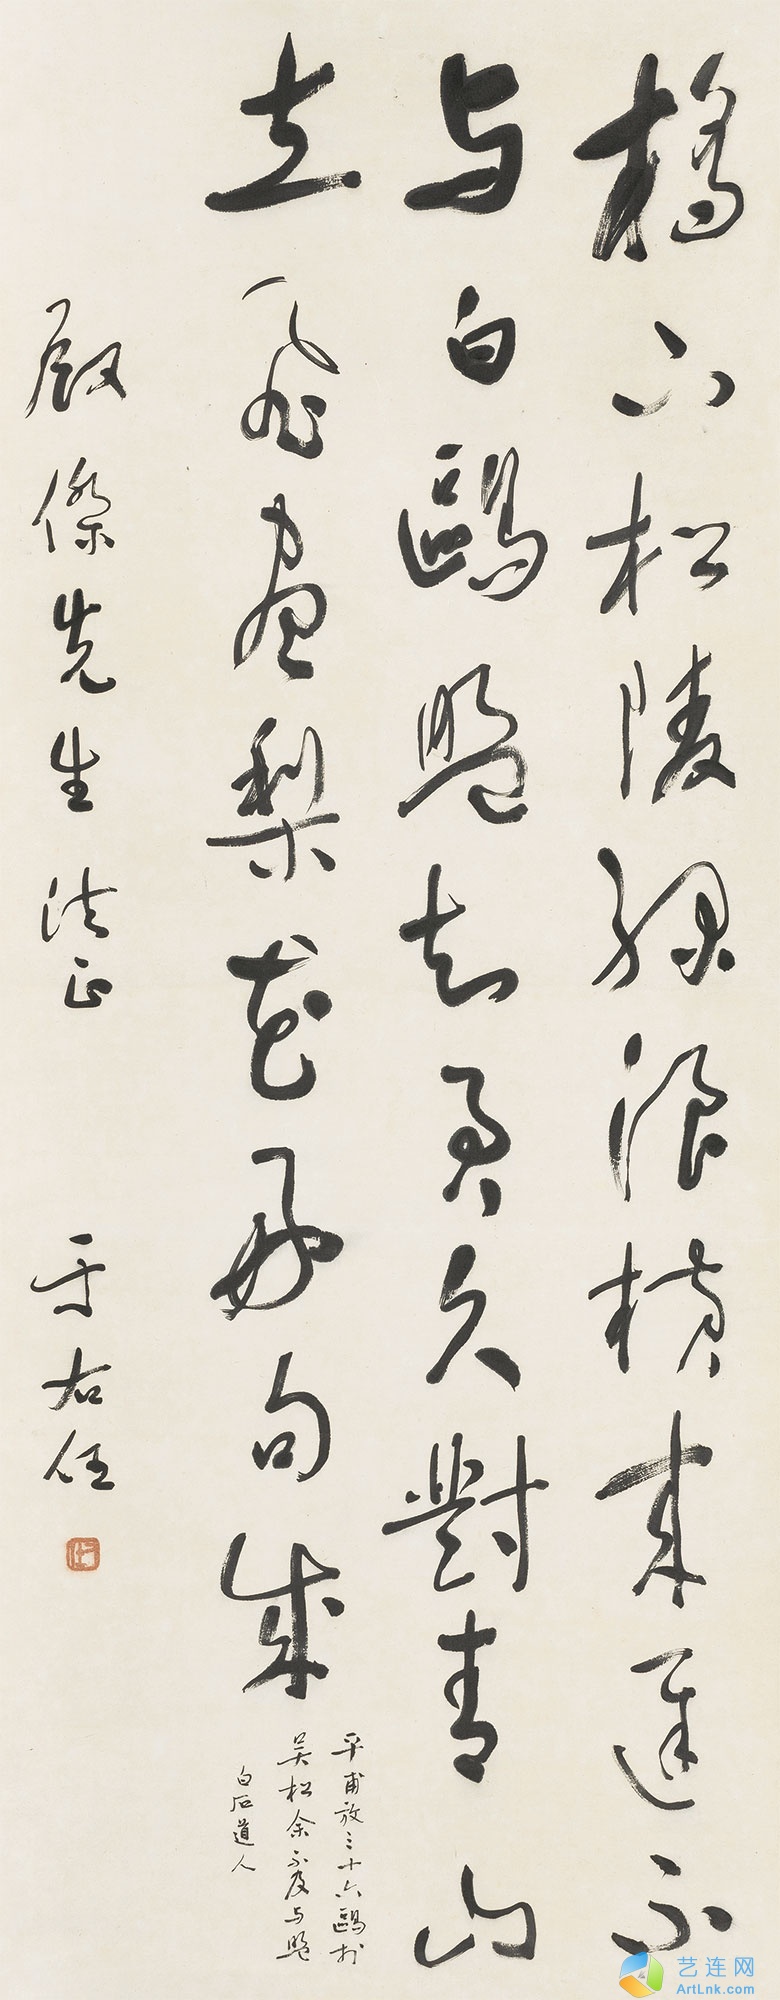 橋下松陵綠浪橫來遲不
与白鷗盟知君久對青山
立飛盡梨花好句成
平甫放三十六鷗於
吳松余不及与盟
白石道人
殿傑先生法正 于右任
艺连网
ArtLnk.com